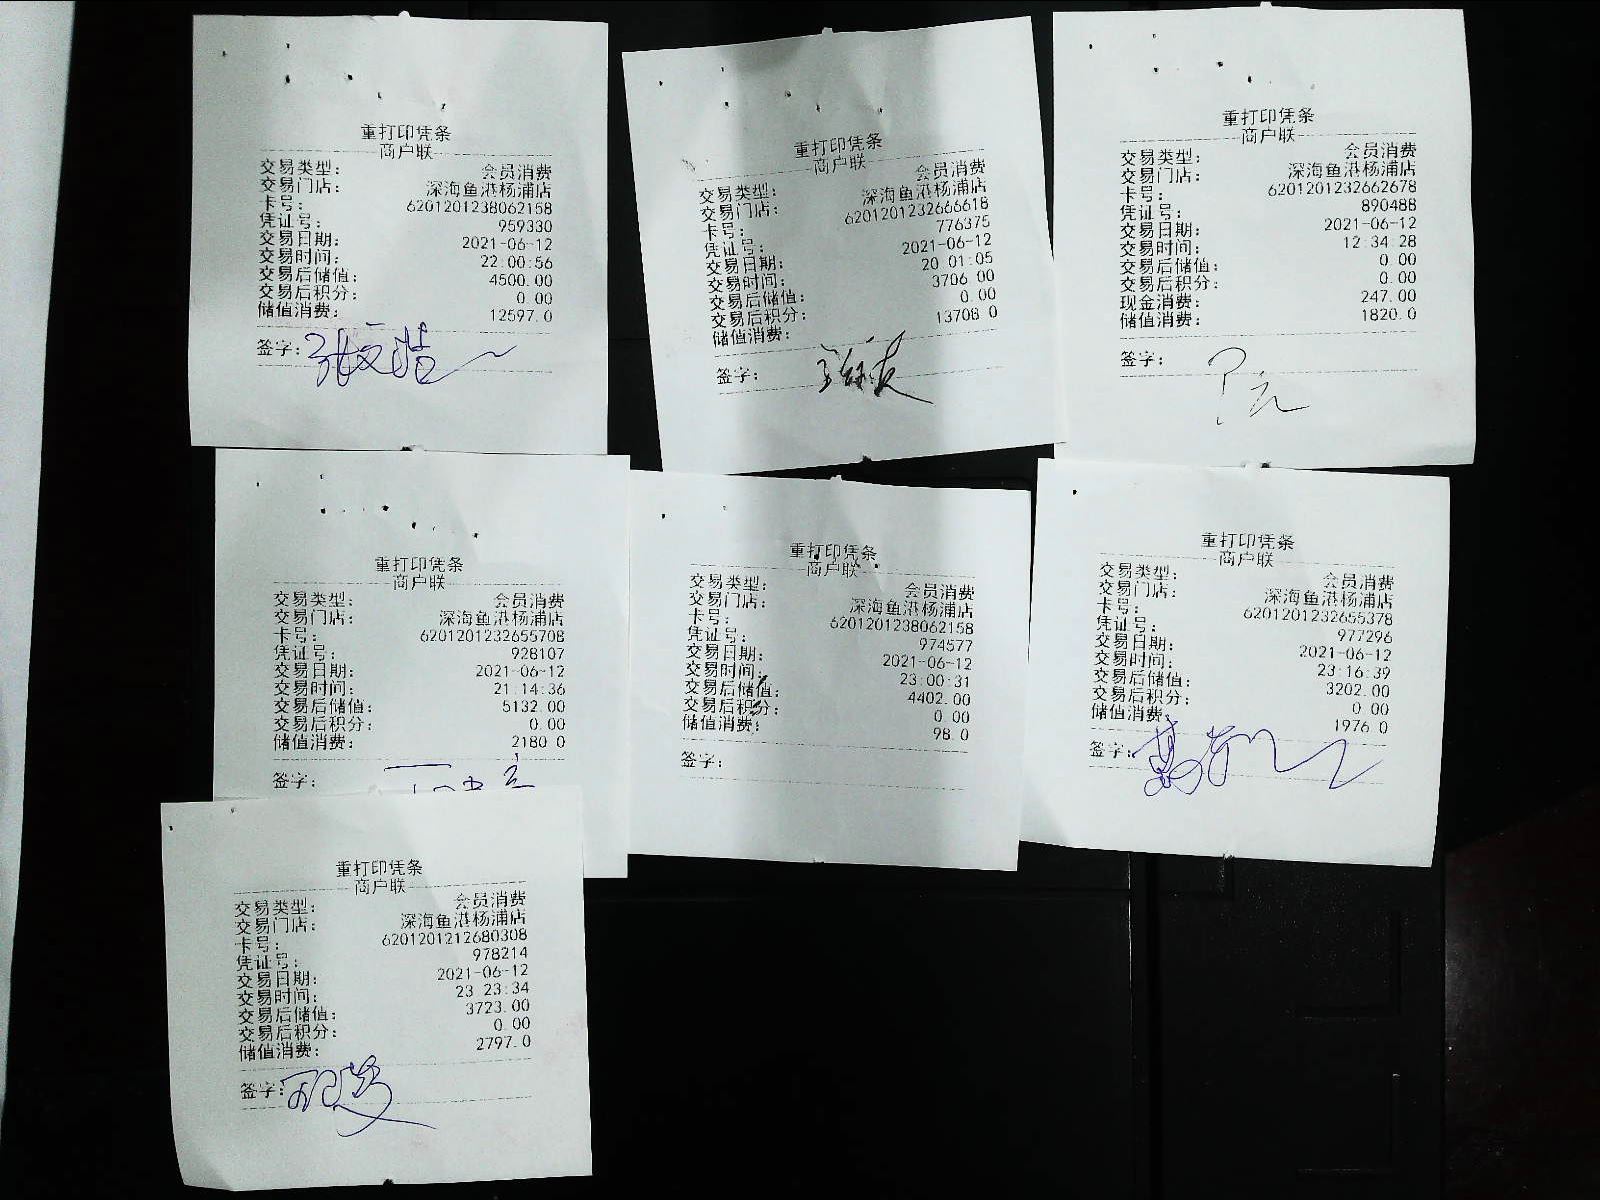 重打印凭条
商户联
交易类型： 会员消费
交易门店： 深海鱼港杨浦店
卡号： 6201201238062158
凭证号： 959330
交易日期： 2021-06-12
交易时间： 22:00:56
交易后储值： 4500.00
交易后积分： 0.00
储值消费： 12597.0
签字：张文浩
重打印凭条
商户联
交易类型： 会员消费
交易门店： 深海鱼港杨浦店
卡号： 6201201232666618
凭证号： 776375
交易日期： 2021-06-12
交易时间： 20:01:05
交易后储值： 3706.00
交易后积分： 0.00
储值消费： 13708.0
签字：
重打印凭条
商户联
交易类型： 会员消费
交易门店： 深海鱼港杨浦店
卡号： 6201201232662678
凭证号： 890488
交易日期： 2021-06-12
交易时间： 12:34:28
交易后储值： 0.00
交易后积分： 0.00
现金消费： 247.00
储值消费： 1820.0
签字：
重打印凭条
商户联
交易类型： 会员消费
交易门店： 深海鱼港杨浦店
卡号： 6201201232655708
凭证号： 928107
交易日期： 2021-06-12
交易时间： 21:14:36
交易后储值： 5132.00
交易后积分： 0.00
储值消费： 2180.0
签字：
重打印凭条
商户联
交易类型： 会员消费
交易门店： 深海鱼港杨浦店
卡号： 6201201238062158
凭证号： 974577
交易日期： 2021-06-12
交易时间： 23:00:31
交易后储值： 4402.00
交易后积分： 0.00
储值消费： 98.0
签字：
重打印凭条
商户联
交易类型： 会员消费
交易门店： 深海鱼港杨浦店
卡号： 6201201232655378
凭证号： 977296
交易日期： 2021-06-12
交易时间： 23:16:39
交易后储值： 3202.00
交易后积分： 0.00
储值消费： 1976.0
签字：
重打印凭条
商户联
交易类型： 会员消费
交易门店： 深海鱼港杨浦店
卡号： 6201201212680308
凭证号： 978214
交易日期： 2021-06-12
交易时间： 23:23:34
交易后储值： 3723.00
交易后积分： 0.00
储值消费： 2797.0
签字：